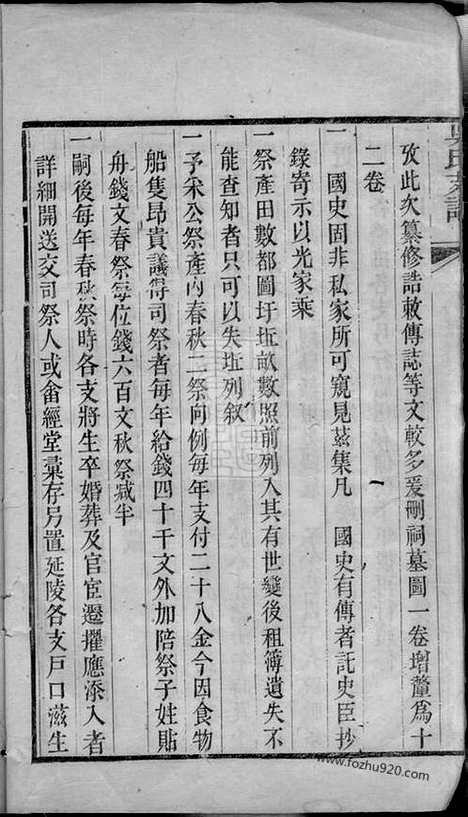 吳氏支譜
攷此次纂修誥敕傳誌等文較多爰刪祠墓圖一卷增釐為十
二卷
一　國史固非私家所可窺見茲集凡　國史有傳者託史臣抄
錄寄示以光家乘
一祭產田數都圖圩坵畝數照前列入其有世變後租簿遺失不
能查知者只可以失坵列敘
一予采公祭產內春秋二祭向例每年支付二十八金今因食物
船隻昂貴議得司祭者每年給錢四十千文外加陪祭子姓貼
舟錢文春祭每位錢六百文秋祭減半
一嗣後每年春秋祭時各支將生卒婚葬及官宦遷擢應添入者
詳細開送交司祭人或畬經堂彙存另置延陵各支戶口滋生
www.fozhu920.com